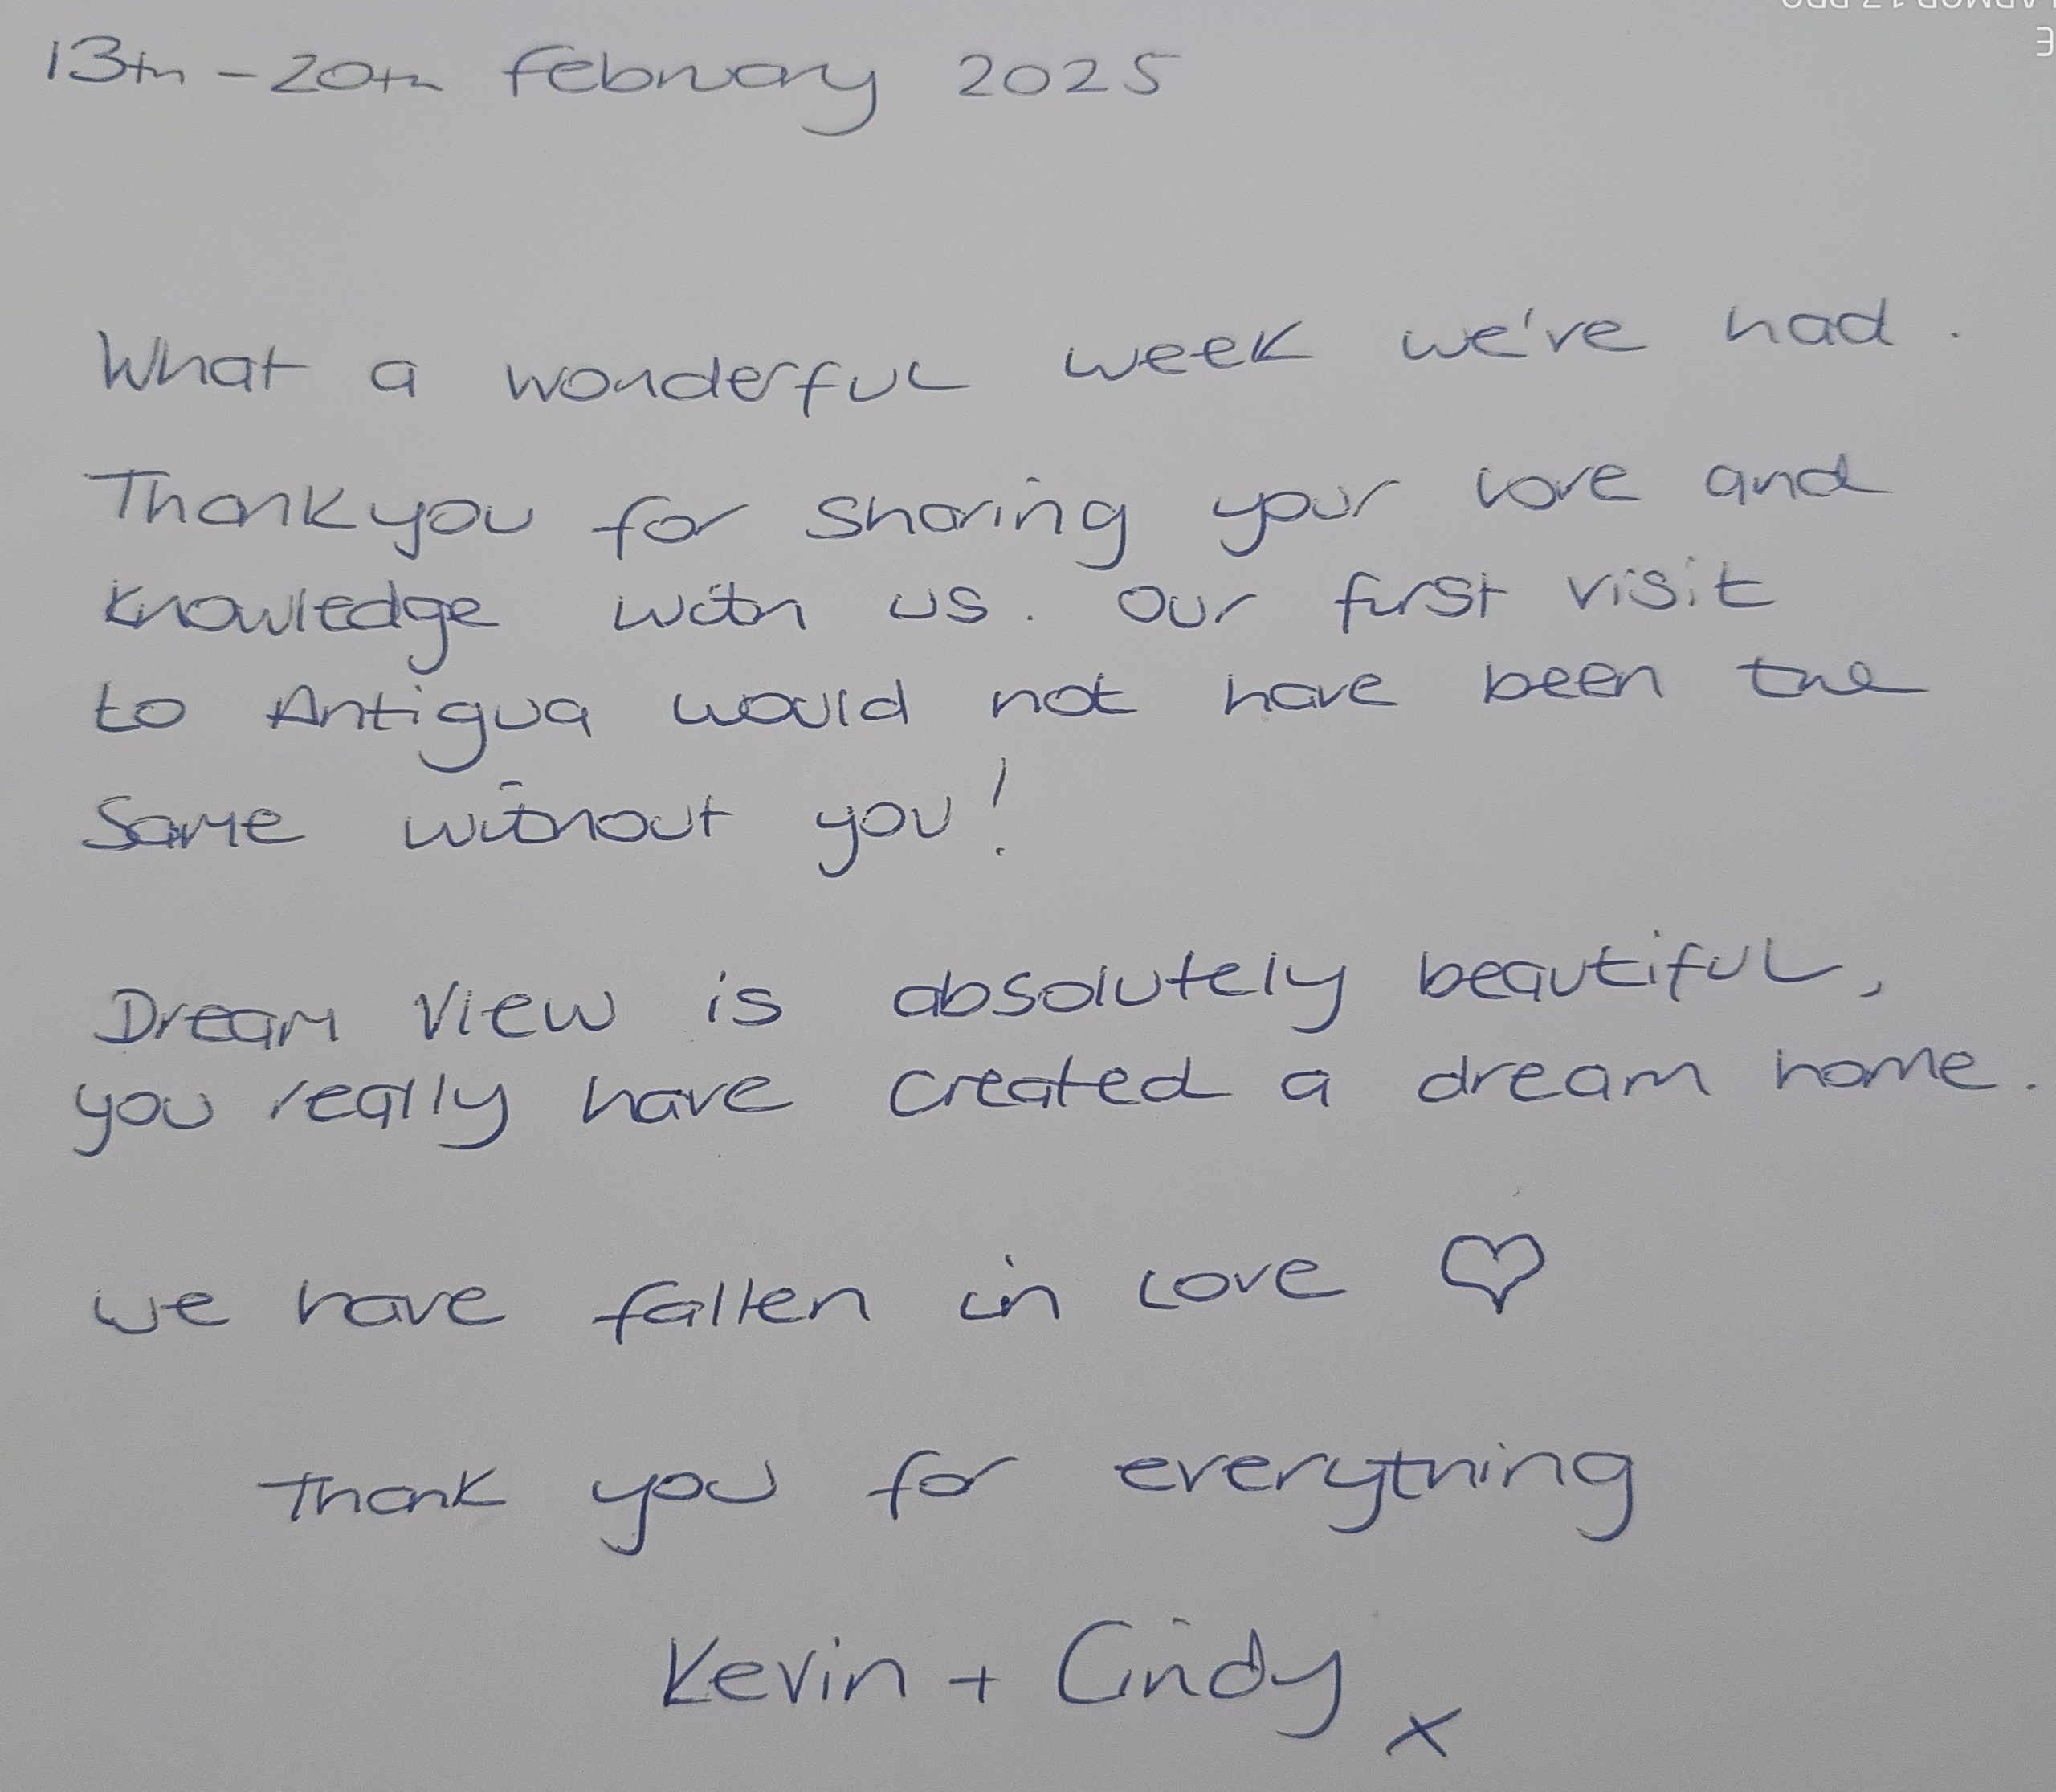 13th - 20th february 2025
What a wonderful week we've had.
Thankyou for sharing your love and
knowledge with us. Our first visit
to Antigua would not have been the
Same without you!
Dream View is absolutely beautiful,
you really have created a dream home.
we have fallen in love ♡
Thank you for everything
Kevin + Cindy x